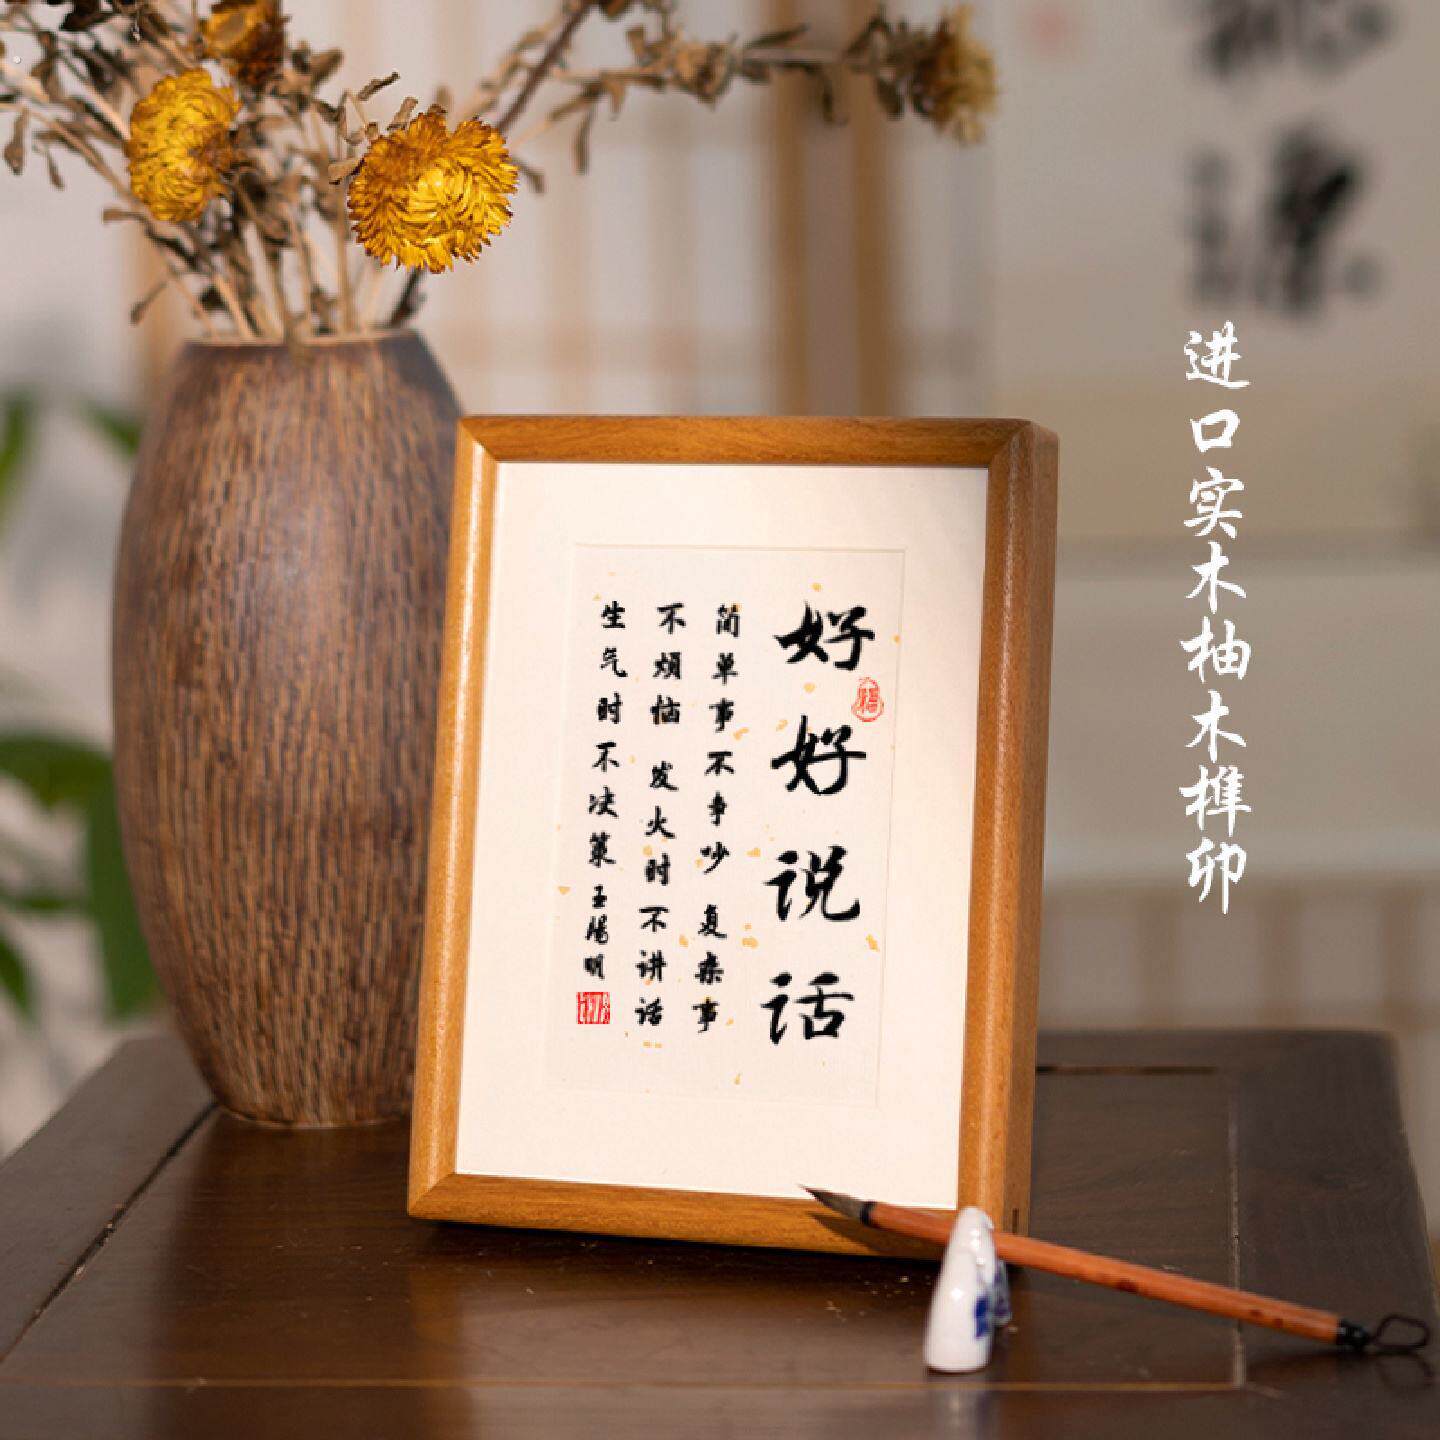 好好说话
简单事不争吵 复杂事
不烦恼 发火时不讲话
生气时不决策 王陽明
福
进口实木柚木榫卯